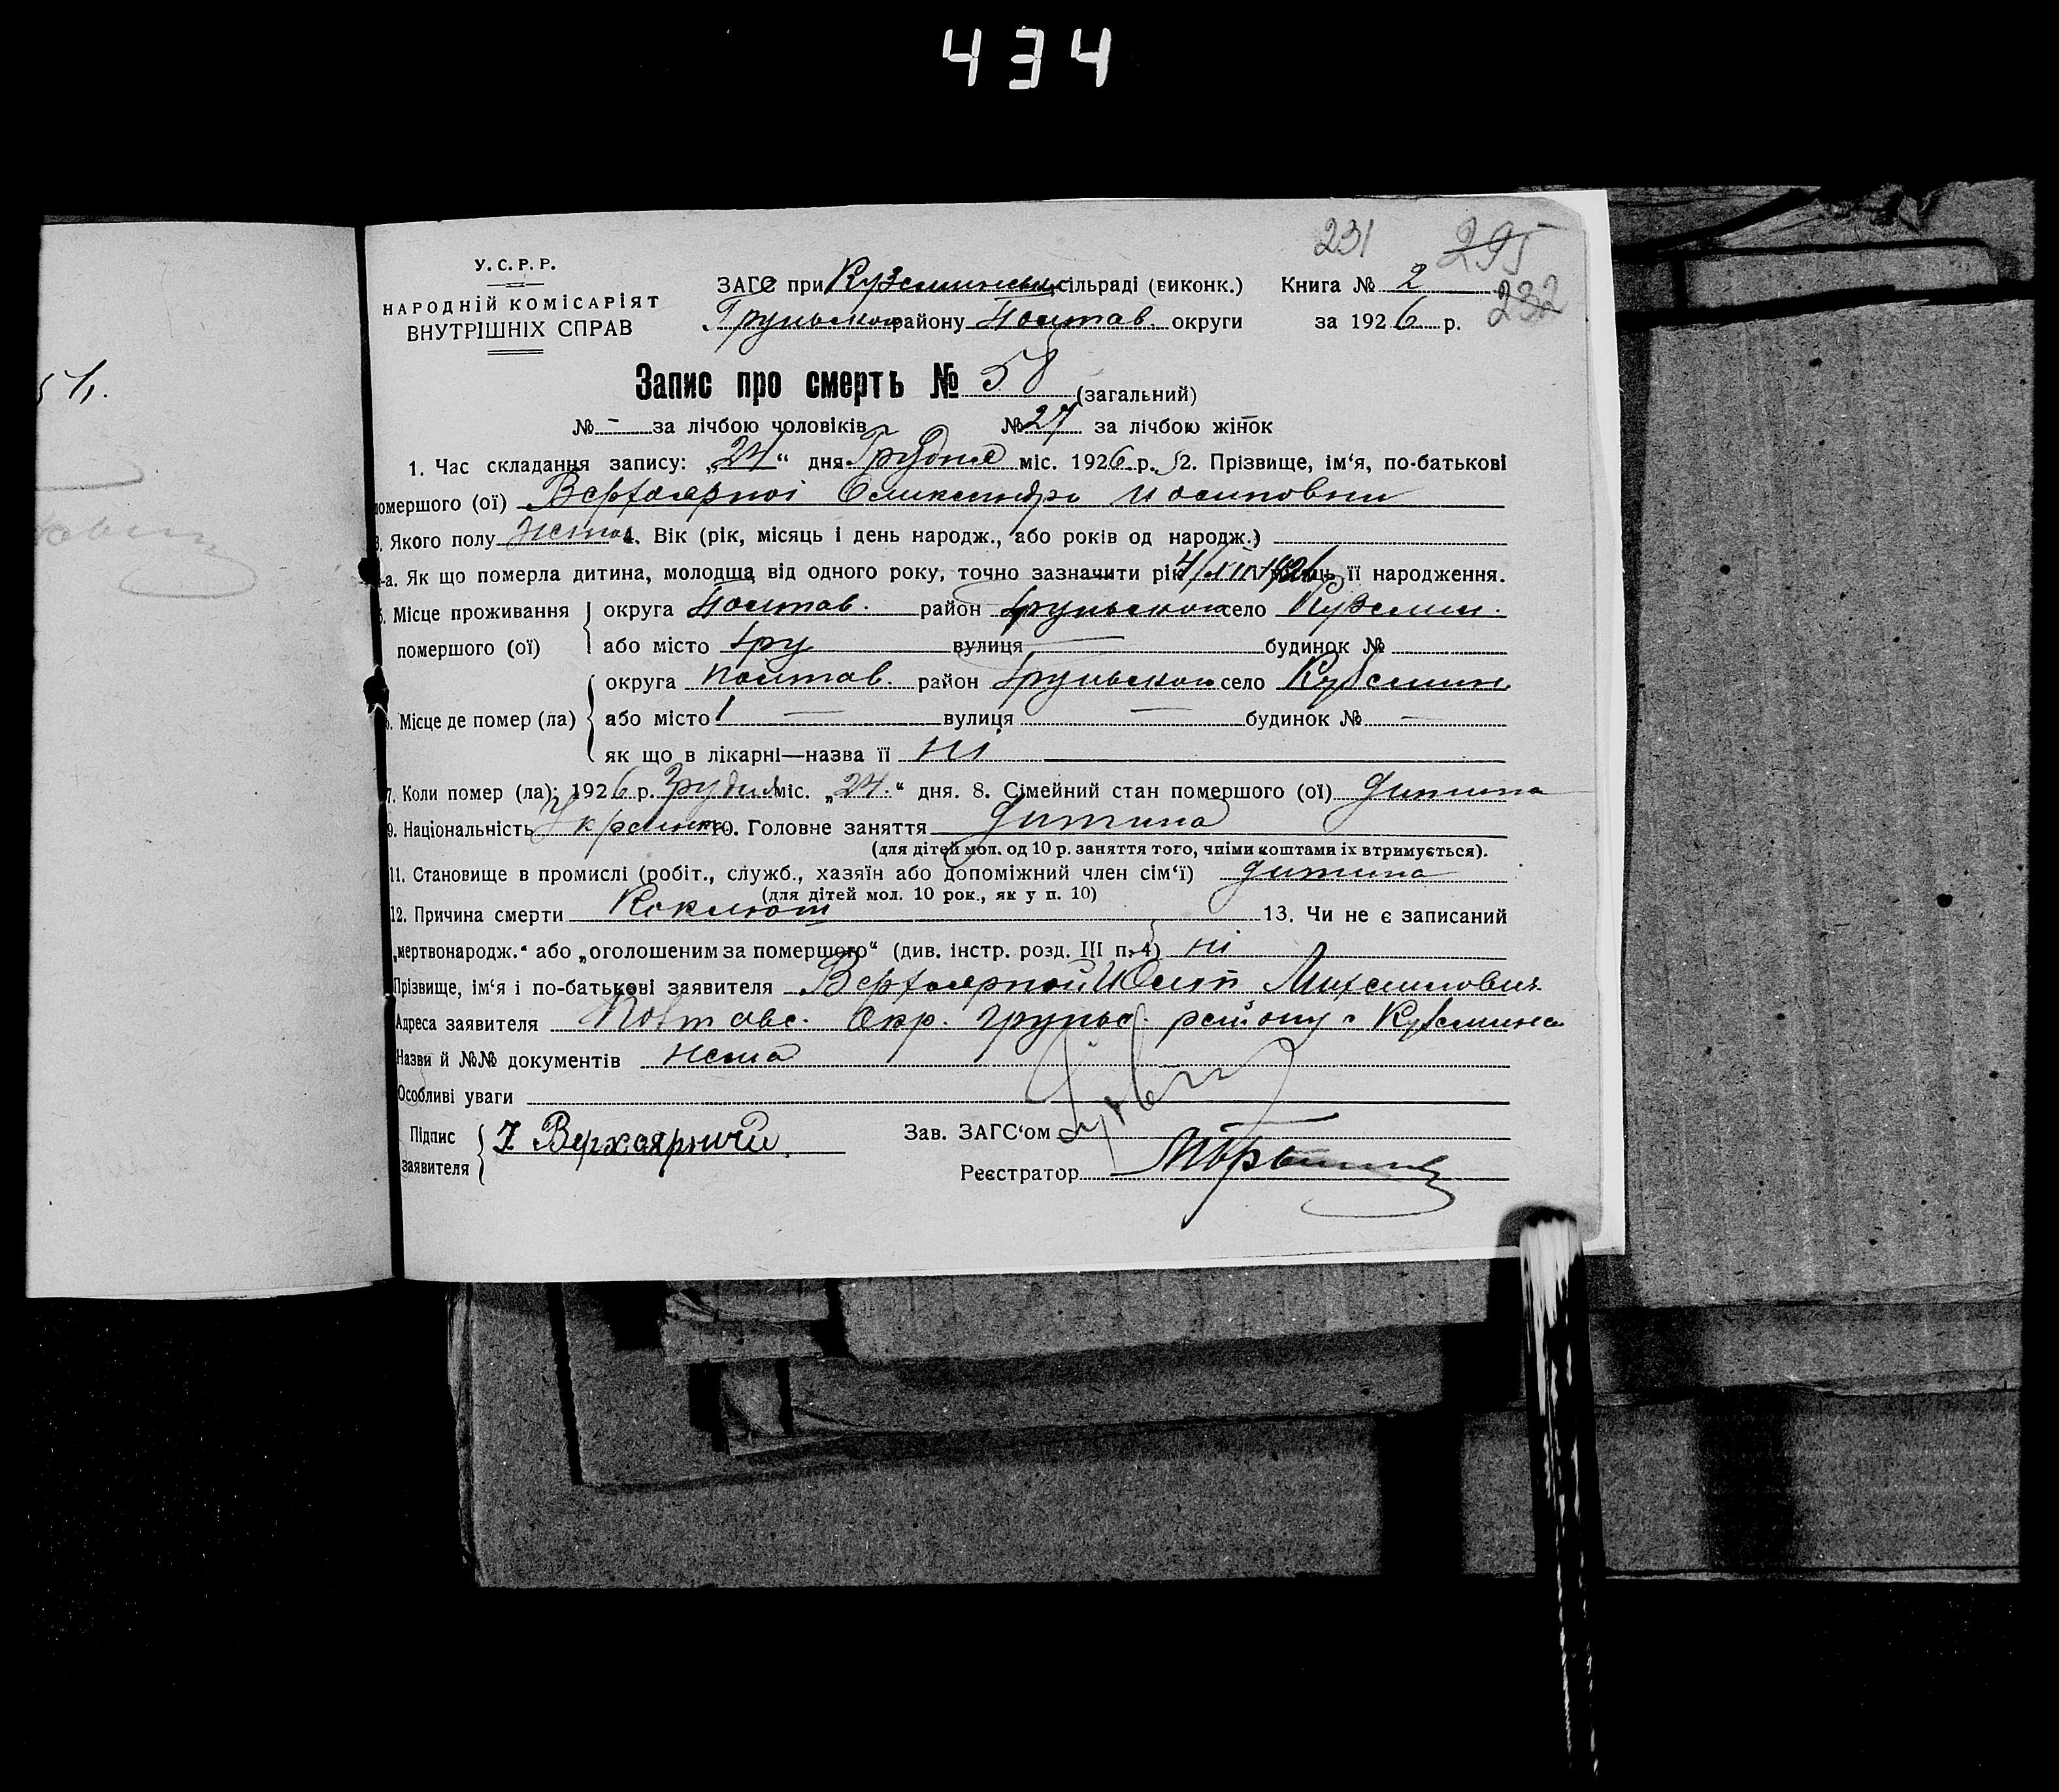 434
231 295
232
У. С. Р. Р.
НАРОДНІЙ КОМІСАРІЯТ
ВНУТРІШНІХ СПРАВ
ЗАГС при Кузьминській сільраді (виконк.) Книга № 2
Груньского району Полтав. округи за 1926 р.
Запис про смерть № 58 (загальний)
№ - за лічбою чоловіків № 27 за лічбою жінок
1. Час складання запису: „24“ дня Грудня міс. 1926 р. 2. Прізвище, ім'я, по-батькові
помершого (ої) Верхоярної Олександри Иосиповни
3. Якого полу 4. Вік (рік, місяць і день народж., або років од народж.)
4-а. Як що померла дитина, молодша від одного року, точно зазначити рік 4/XII 1926 місяць її народження.
5. Місце проживання округа Полтав. район Груньского село Кузьмин.
помершого (ої) або місто Гру вулиця — будинок №
округа Полтав. район Груньского село Кузьмин.
6. Місце де помер (ла) або місто — вулиця — будинок № —
як що в лікарні—назва її ні
7. Коли помер (ла): 1926 р. Грудня міс. „24.“ дня. 8. Сімейний стан помершого (ої) дитина
9. Національність Українка 10. Головне заняття дитина
(для дітей мол. од 10 р. заняття того, чиїми коштами їх втримується).
11. Становище в промислі (робіт., служб., хазяїн або допоміжний член сім'ї) дитина
(для дітей мол. 10 рок., як у п. 10)
12. Причина смерти Коклюш 13. Чи не є записаний
„мертвонародж.“ або „оголошеним за помершого“ (див. інстр. розд. III п. 4) ні
Прізвище, ім'я і по-батькові заявителя Верхоярной
Адреса заявителя Полтавс. Окр. Груньс. району с Кузьмина
Назви й №№ документів нема
Особливі уваги
Підпис заявителя Верхоярний Зав. ЗАГС'ом
Реєстратор